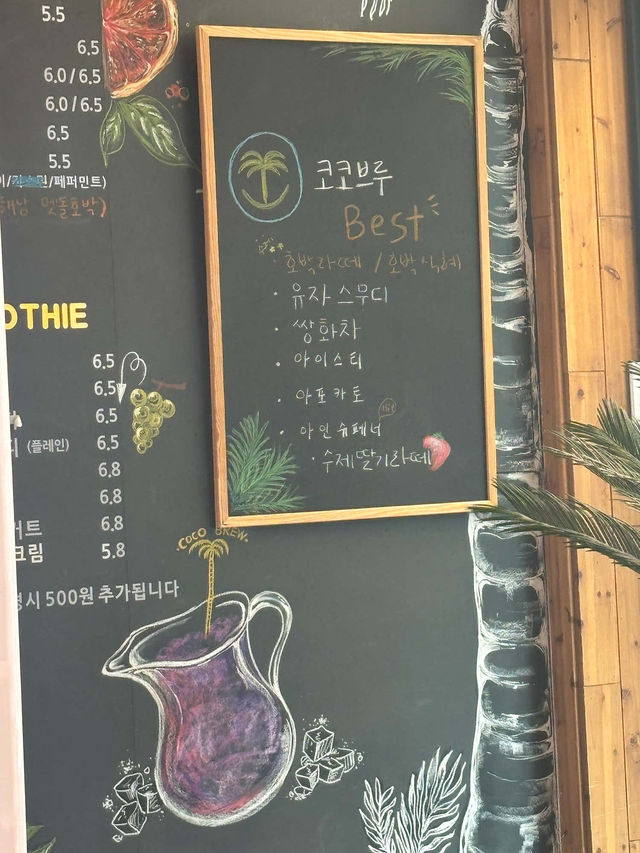 5.5
6.5
6.0 / 6.5
6.0 / 6.5
6.5
5.5
/페퍼민트)
맷돌호박)
OTHIE
6.5
6.5
6.5
(플레인) 6.5
6.8
6.8
6.8
크림 5.8
시 500원 추가됩니다
코코브루
Best
· 호박라떼 / 호박식혜
· 유자스무디
· 쌍화차
· 아이스티
· 아포카토
· 아인슈페너
· 수제딸기라떼
COCO BREW